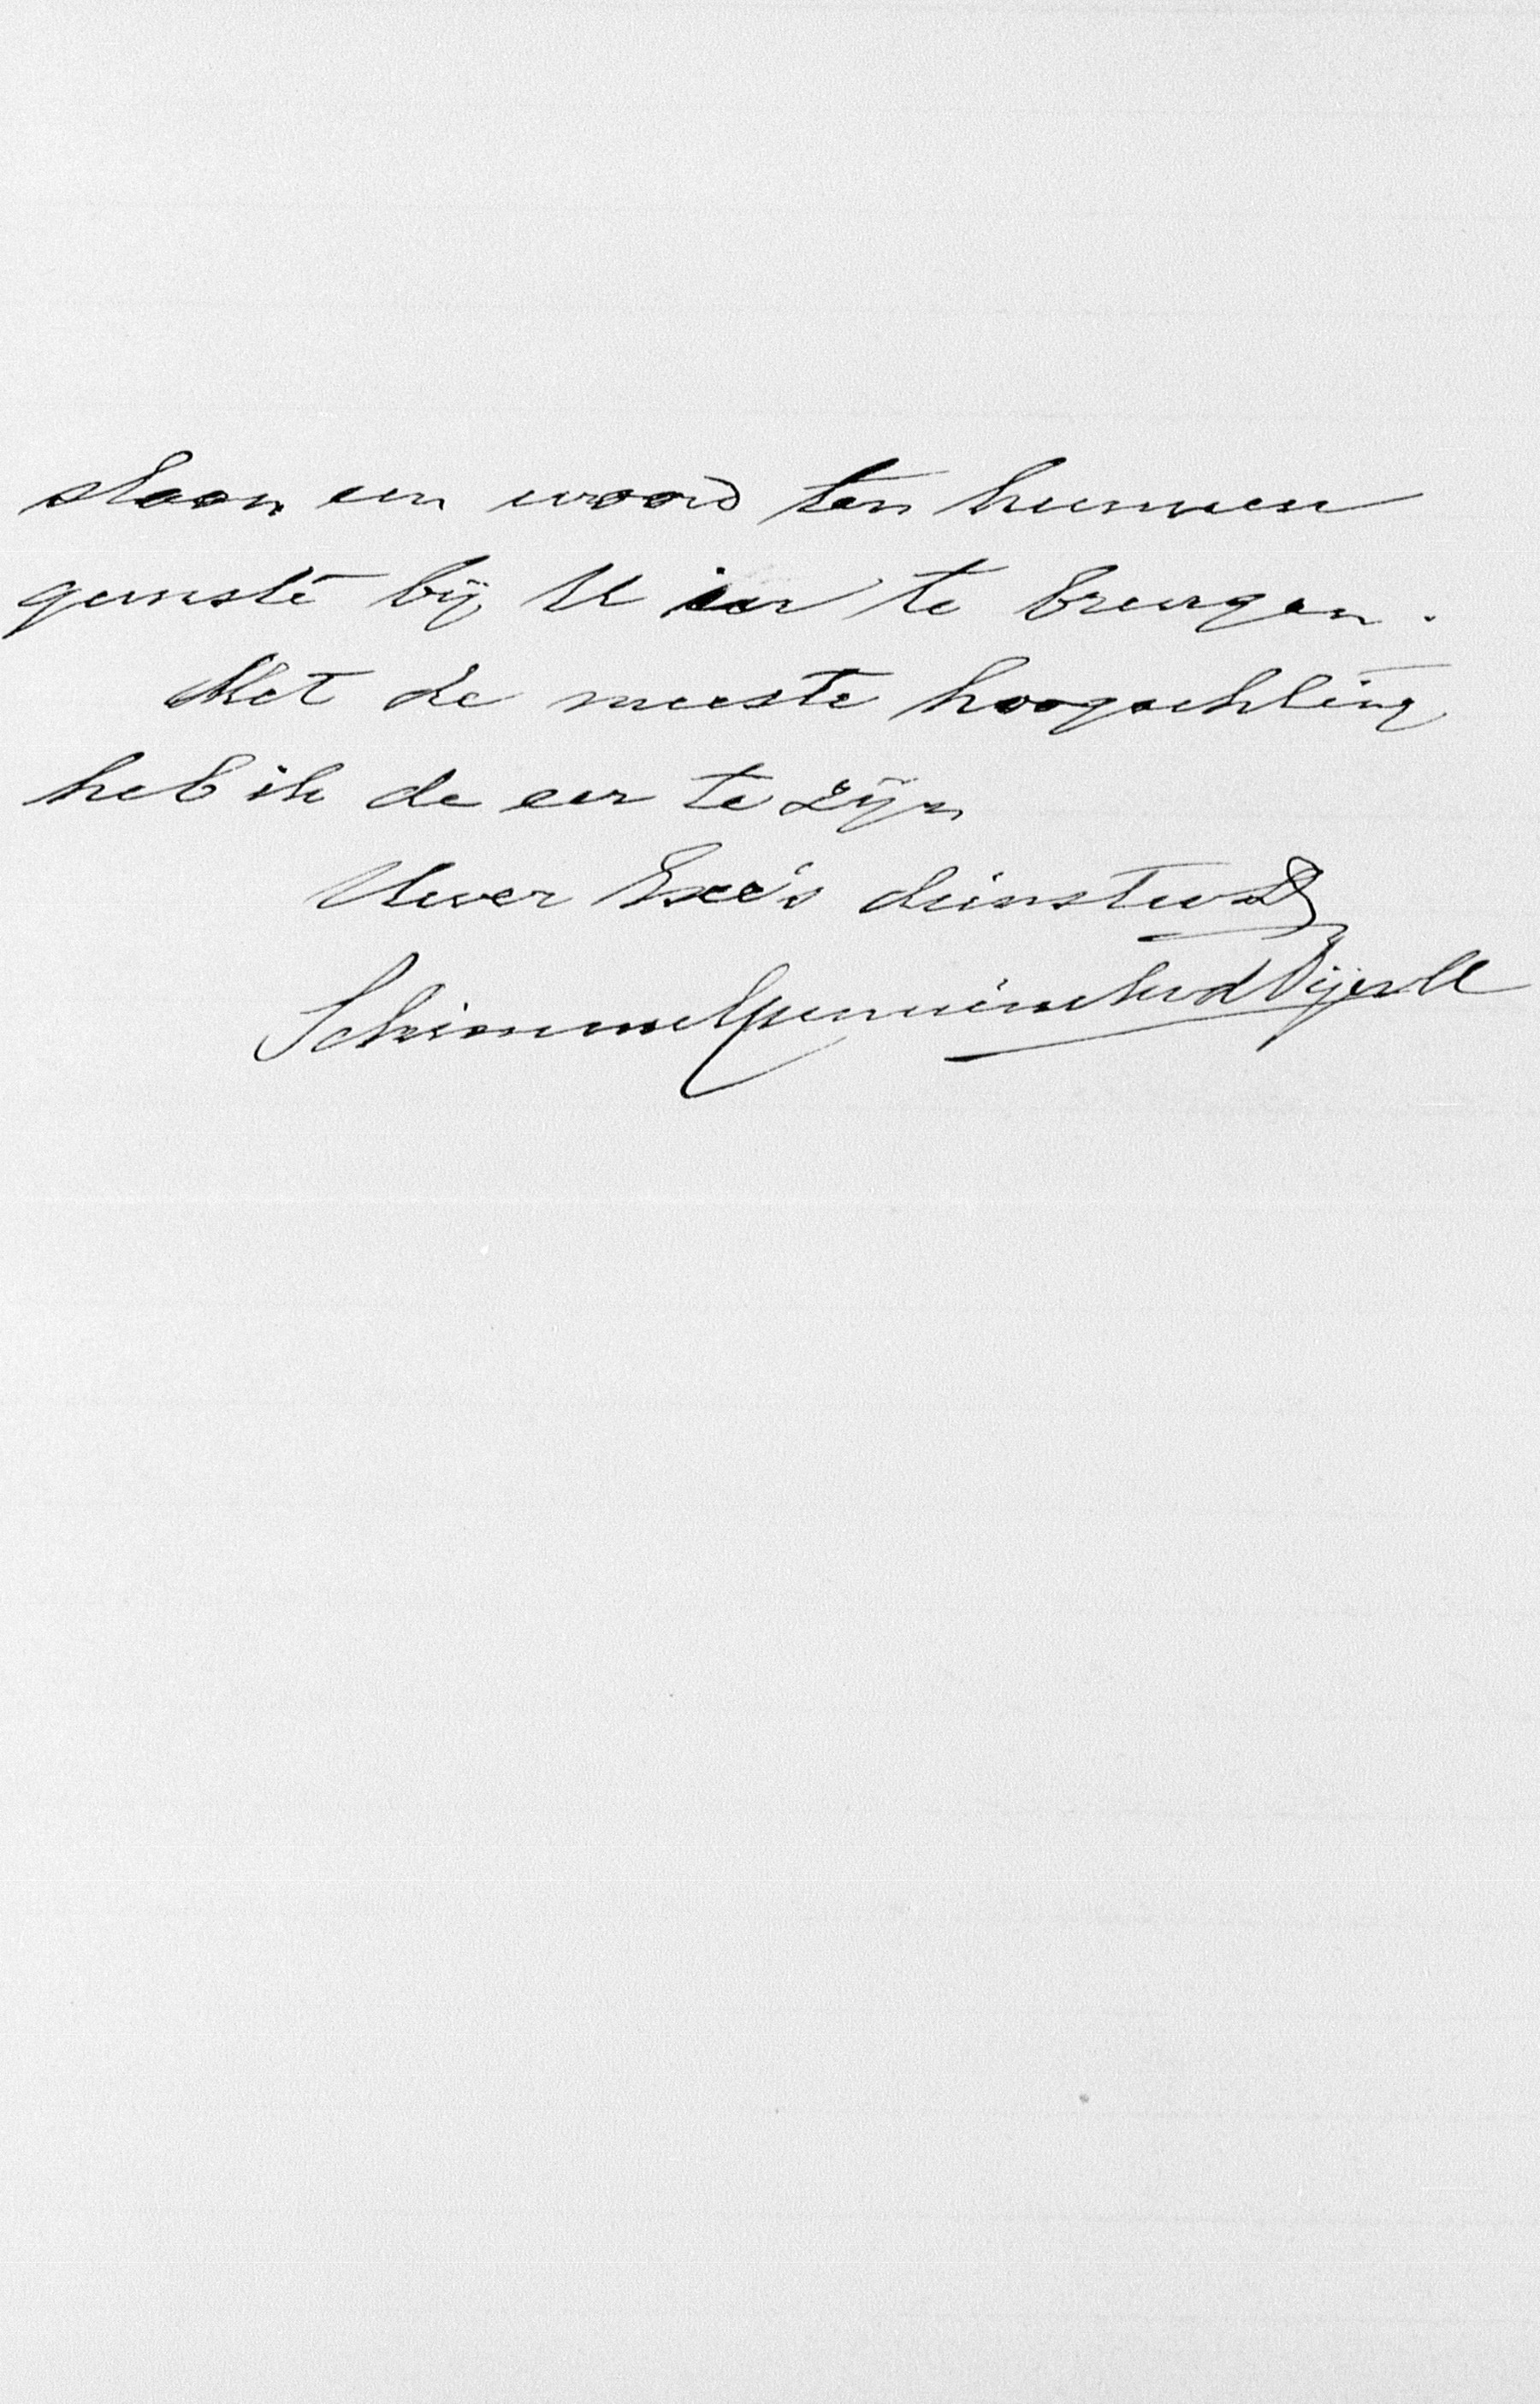 staan een woord ten hunnen
gunste bij U in te brengen.
Met de meeste hoogachting
heb ik de eer te zijn
Uwer Exc's dienstw
Schimmelpenninck vd Oije